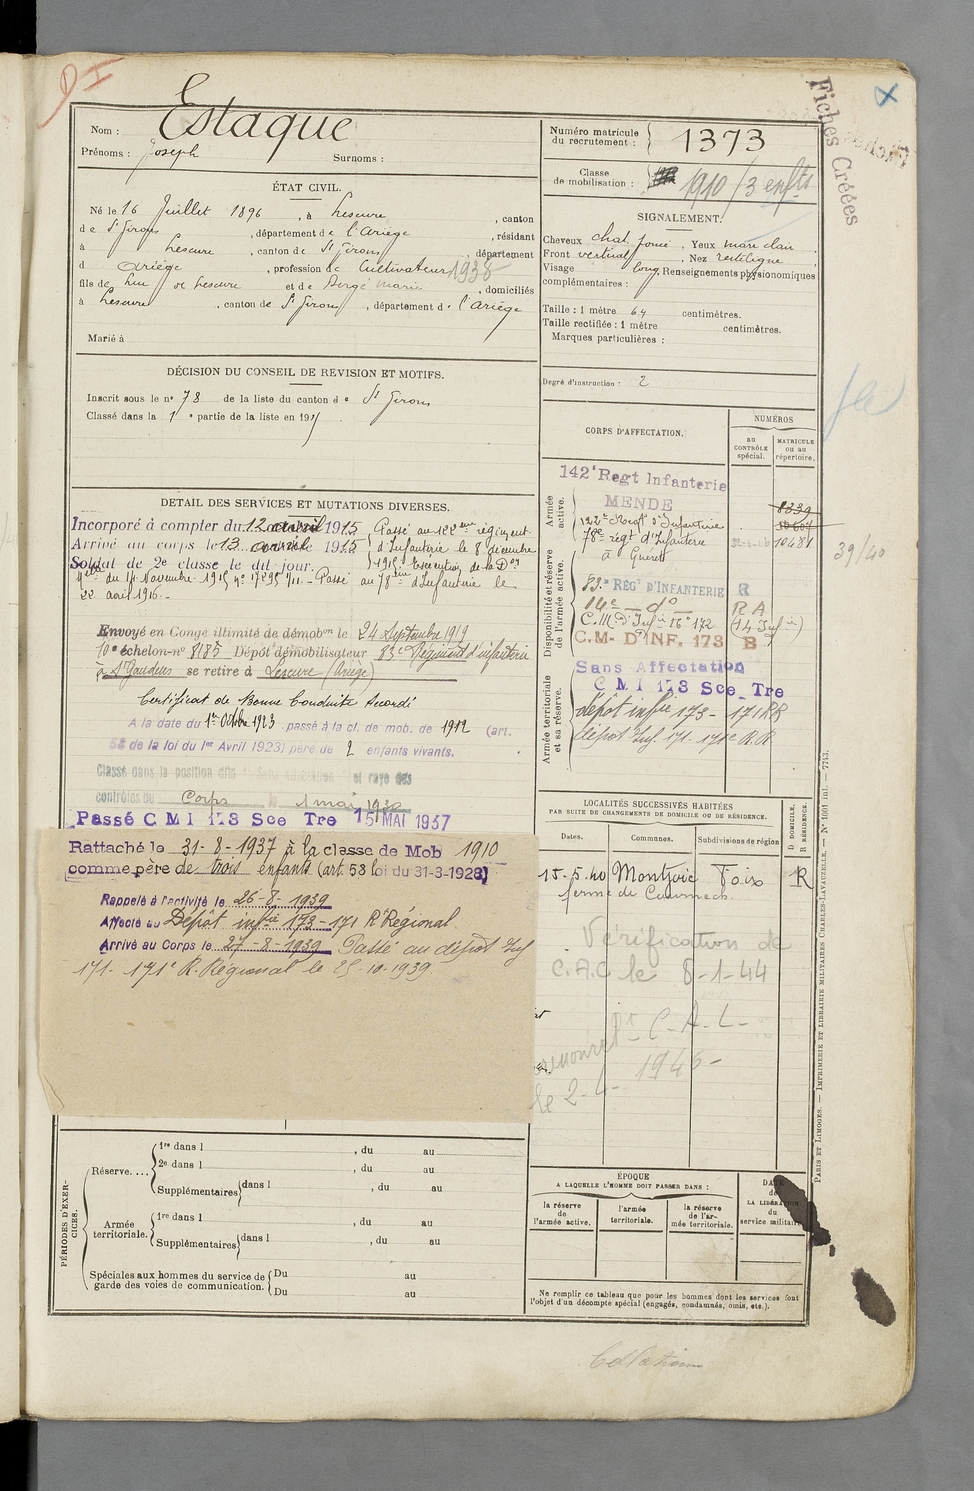 Nom : Estaque
Prénoms : Joseph Surnoms :
ÉTAT CIVIL.
Né le 16 Juillet 1896, à Lescure, canton
de St Girons, département de l'Ariège, résidant
à Lescure, canton de St Girons, département
d Ariège, profession de Cultivateur 1938
fils de Luc de Lescure et de Bergé Marie, domiciliés
à Lescure, canton de St Girons, département de l'Ariège
Marié à
DÉCISION DU CONSEIL DE REVISION ET MOTIFS.
Inscrit sous le n° 78 de la liste du canton de St Girons
Classé dans la 1e partie de la liste en 1915
DÉTAIL DES SERVICES ET MUTATIONS DIVERSES.
Incorporé à compter du 12 avril 1915
Arrivé au corps le 13 avril 1915
Soldat de 2e classe le dit jour.
Passé au 122eme régiment
d'Infanterie le 8 décembre
1915. Exécution de la Don
du 14 Novembre 1915 n° 17295 1/11. Passé au 78eme d'Infanterie le
22 avril 1916.
Envoyé en Congé illimité de démobon le 24 Septembre 1919
10e échelon-n° 8185 Dépôt démobilisateur 83e Régiment d'infanterie
à St Gaudens se retire à Lescure (Ariège)
Certificat de Bonne Conduite Accordé
A la date du 1er Octobre 1923 passé à la cl. de mob. de 1912 (art.
58 de la loi du 1er Avril 1923) père de 2 enfants vivants.
Classé dans la position dite Sans affectation et rayé des
contrôles du Corps le 1 mai 1930
Passé C M I 173 Sce Tre 15 MAI 1937
Rattaché le 31-8-1937 à la classe de Mob 1910
comme père de trois enfants (art. 58 loi du 31-3-1928)
Rappelé à l'activité le 26-8-1939
Affecté au Dépôt infie 173-171 R'Régional
Arrivé au Corps le 27-8-1939 Passé au dépôt Inf
171- 171e R. Régional le 25-10-1939
PÉRIODES D'EXERCICES.
Réserve....
1re dans l , du au
2e dans l , du au
Supplémentaires dans l , du au
Armée territoriale.
1re dans l , du au
Supplémentaires dans l , du au
Spéciales aux hommes du service de garde des voies de communication.
Du au
Du au
Numéro matricule
du recrutement : 1373
Classe
de mobilisation : 1910 / 3 enfts
SIGNALEMENT.
Cheveux chat. foncé, Yeux marr clair
Front vertical, Nez rectiligne
Visage long Renseignements physionomiques
complémentaires :
Taille : 1 mètre 64 centimètres.
Taille rectifiée : 1 mètre centimètres.
Marques particulières :
Degré d'instruction : 2
CORPS D'AFFECTATION.
NUMÉROS
au CONTRÔLE spécial.
MATRICULE ou au répertoire.
Armée active.
142e Regt Infanterie
MENDE
122e Regt d'Infanterie
78e régt d'Infanterie 10481
à Guéret
Disponibilité et réserve de l'armée active.
83e REGt D'INFANTERIE R
14e — do — R A
C.M. D'Infie 16e 172 (14 Infie)
C.M- D'INF. 173 B
Armée territoriale et sa réserve.
Sans Affectation
C M I 173 Sce Tre
dépôt infie 173- 171 RR
dépôt Inf. 171- 171e R.R
LOCALITÉS SUCCESSIVES HABITÉES
PAR SUITE DE CHANGEMENTS DE DOMICILE OU DE RÉSIDENCE.
D DOMICILE. R RÉSIDENCE.
Dates. Communes. Subdivisions de région
15-5-40 Montjoie Foix R
ferme de
Vérification de
C.A.C le 8-1-44
C.A.L-
le 2-4- 1946-
ÉPOQUE
A LAQUELLE L'HOMME DOIT PASSER DANS :
la réserve de l'armée active.
l'armée territoriale.
la réserve de l'armée territoriale.
DATE de LA LIBÉRATION du service militaire
Ne remplir ce tableau que pour les hommes dont les services font
l'objet d'un décompte spécial (engagés, condamnés, omis, etc.).
Fiches Créées
39/40
PARIS ET LIMOGES. — IMPRIMERIE ET LIBRAIRIE MILITAIRES CHARLES-LAVAUZELLE. — N° 1001 — 7743.